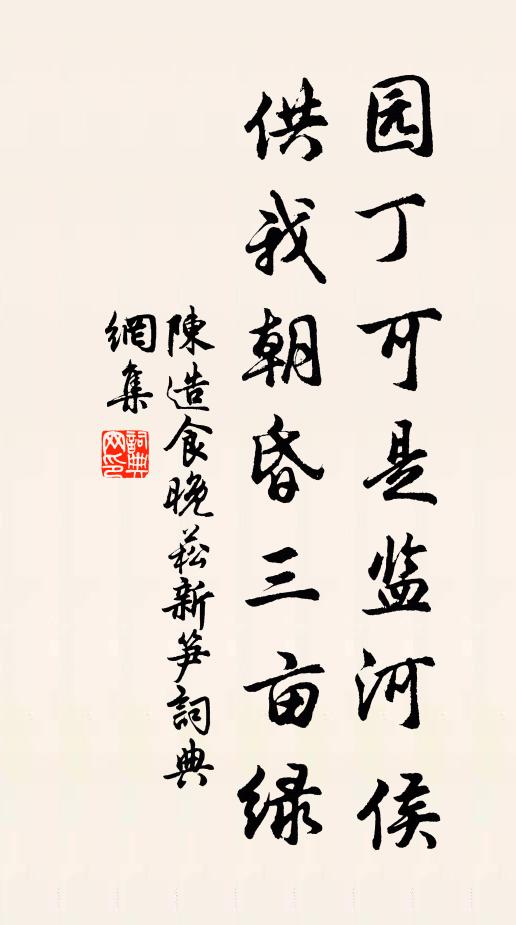 园丁可是监河侯
供我朝昏三亩绿
陳造食晚菘新笋詞典
網集
詞典網印